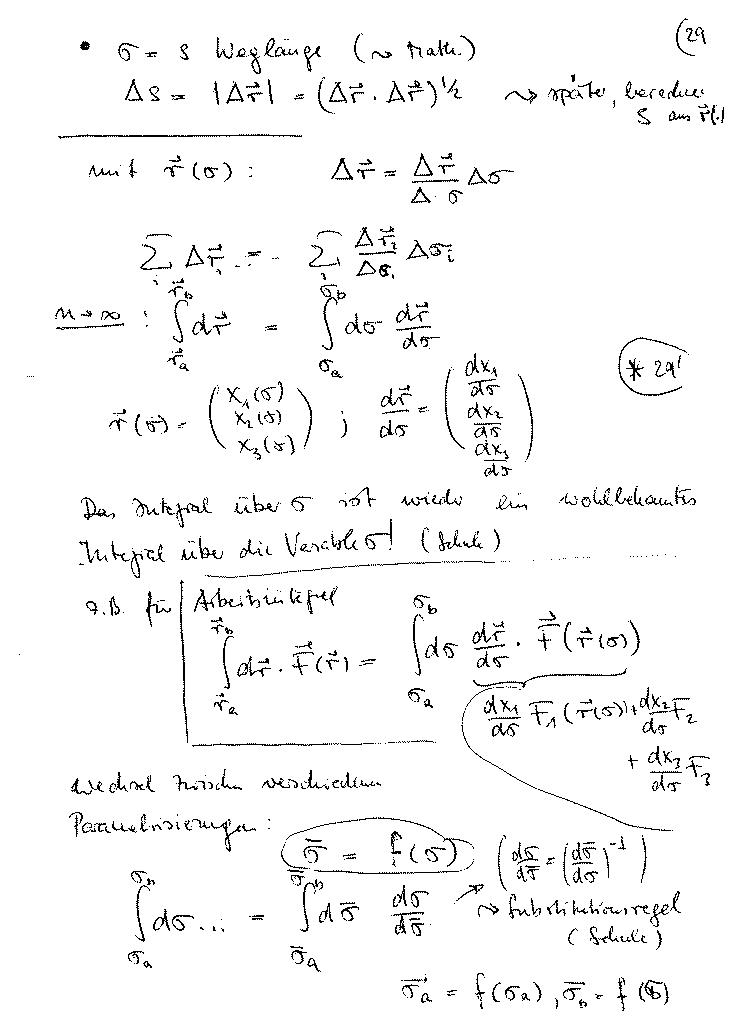 (29
• σ = s Weglänge (⤳ Math.)
Δs = |Δr⃗| = (Δr⃗ · Δr⃗)^1/2 ⤳ später, berechne
s aus r⃗(.)
mit r⃗(σ) : Δr⃗ = Δr⃗/Δσ Δσ
∑_i Δr⃗_i ..= ∑_i Δr⃗_i/Δσ_i Δσ_i
n→∞ : ∫_{r⃗_a}^{r⃗_b} dr⃗ = ∫_{σ_a}^{σ_b} dσ dr⃗/dσ
* 29'
r⃗(σ) = (x₁(σ) x₂(σ) x₃(σ)) ; dr⃗/dσ = (dx₁/dσ dx₂/dσ dx₃/dσ)
Das Integral über σ ist wieder ein wohlbekanntes
Integral über die Variable σ! (Schule)
z.B. für Arbeitsintegral
∫_{r⃗_a}^{r⃗_b} dr⃗ · F⃗(r⃗) = ∫_{σ_a}^{σ_b} dσ dr⃗/dσ · F⃗(r⃗(σ))
dx₁/dσ F₁(r⃗(σ)) + dx₂/dσ F₂
+ dx₃/dσ F₃
Wechsel zwischen verschiedenen
Parametrisierungen :
σ̄ = f(σ) (dσ/dσ̄ = (dσ̄/dσ)^-1)
∫_{σ_a}^{σ_b} dσ... = ∫_{σ̄_a}^{σ̄_b} dσ̄ dσ/dσ̄ ⤳ Substitutionsregel
(Schule)
σ̄_a = f(σ_a), σ̄_b = f(σ)